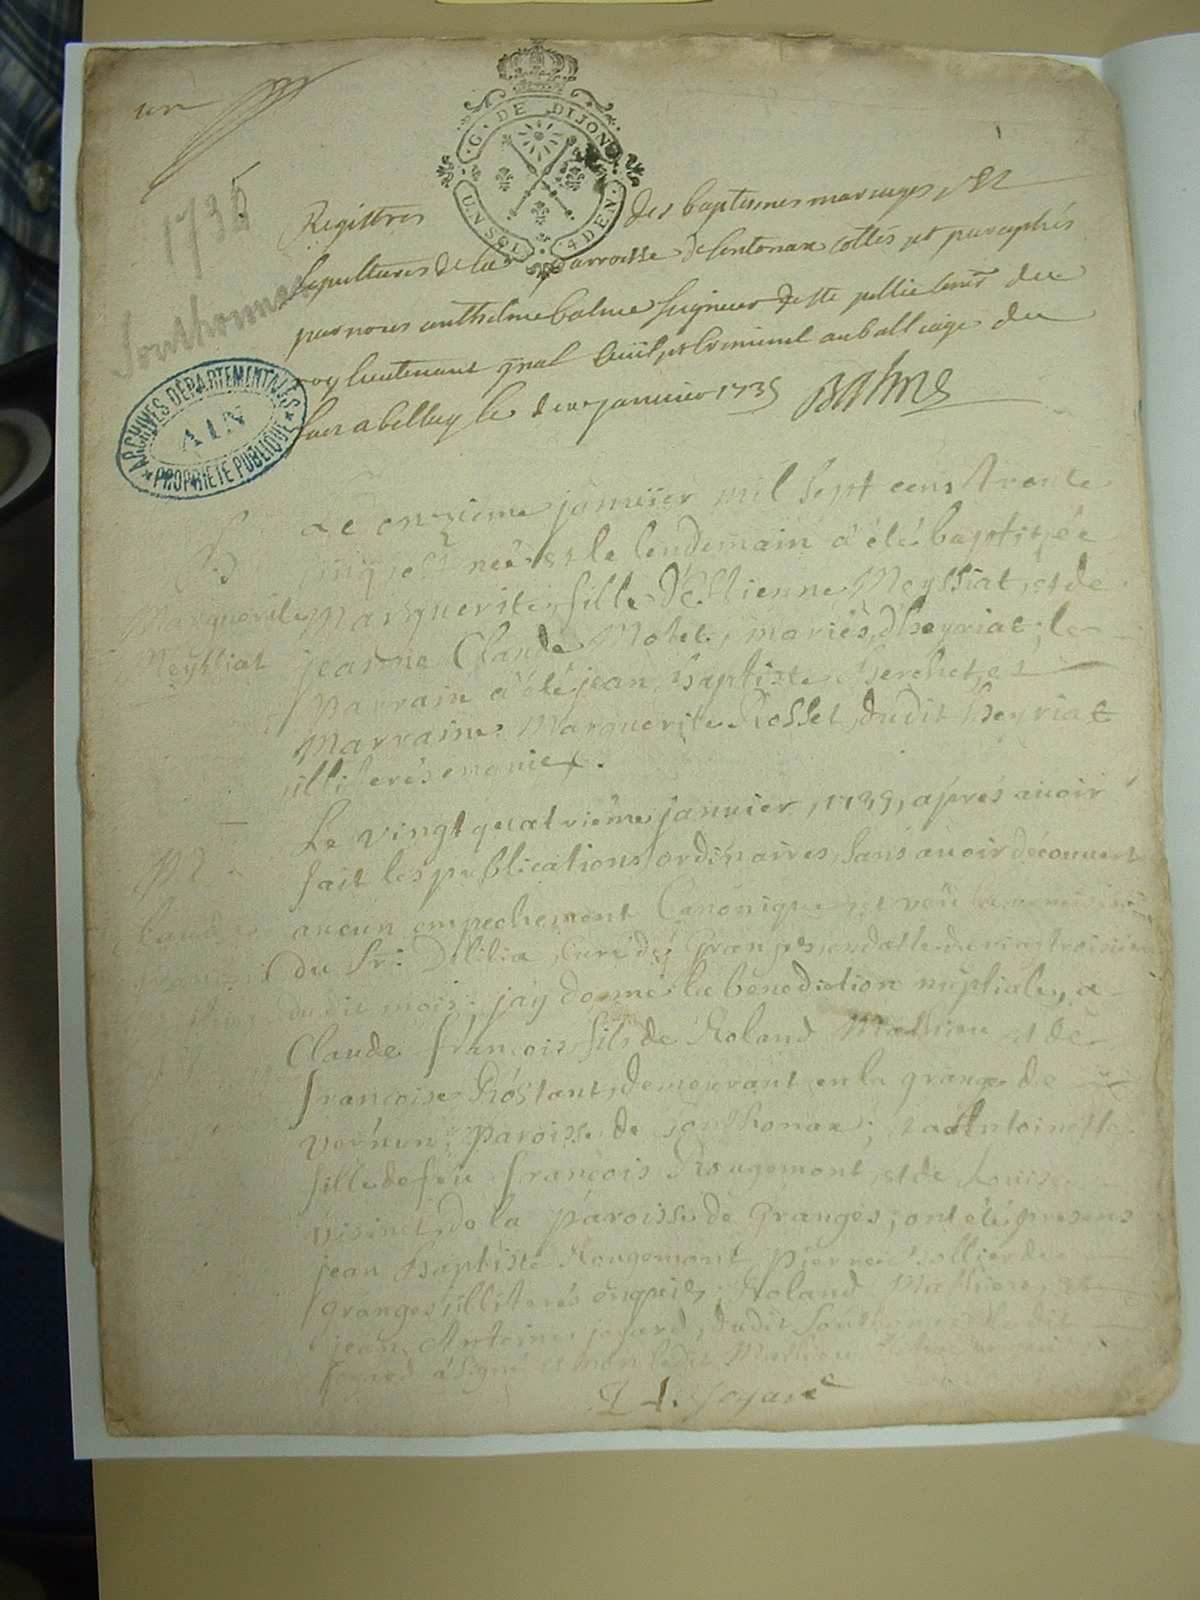 un
G. DE DIJON
UN SOL 4 DEN.
1735
Southonnax
Registres des baptesmes mariages et
sepultures de la parroisse de sontonax cottés et paraphés
par nous anthelme balme seigneur de
roy lieutenant gnal civil et criminel au balliage du
a belley le deux janvier 1735 Balme
ARCHIVES DÉPARTEMENTALES
AIN
PROPRIÉTÉ PUBLIQUE
Le onzieme janvier mil sept cens trente
cinq est née et le lendemain a été baptizée
Marguerite
Marguerite, fille d'Estienne Meyssiat, et de
Meyssiat
jeanne Claude Motet, mariés, d'heyriat; le
Parrain a été jean Baptiste Berchet, et
Marraine Marguerite Rosset, dudit heyriat
illiterés enquis.
Le vingt quatrieme janvier, 1735, après avoir
fait les publications ordinaires, sans avoir découvert
aucun empechement Canonique et veu la
Claude
du Sr: curé de Granges, en datte du vingt troisieme
françois
dudit mois; j'ay donné la benediction nuptiale, a
Claude françois fils de Roland Mathieu et de
francoise Rostant, demeurant en la grange de
paroisse de Sonthonax; et a Antoinette
fille de feu françois Rougemont, et de Louise
de la Paroisse de Granges; ont été presens
jean Baptiste Rougemont, Pierre de
Granges illiterés enquis; Roland Mathieu, et
jean Antoine joyard, dudit Sonthonax ledit
joyard a signé et non ledit Mathieu
J A. Joyard